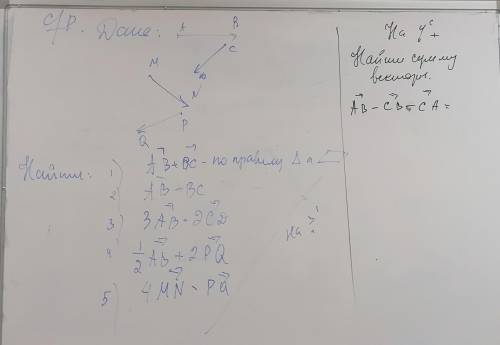 С/р. Дано:
A B
C
M
D
N
P
Q
Найти:
1) AB + BC - по правилу Δ и ▱
2) AB - BC
3) 3AB - 2CD
4 1/2 AB + 2PQ
5) 4MN - PQ
На
На
Найти сумму
векторы.
AB - CB + CA =